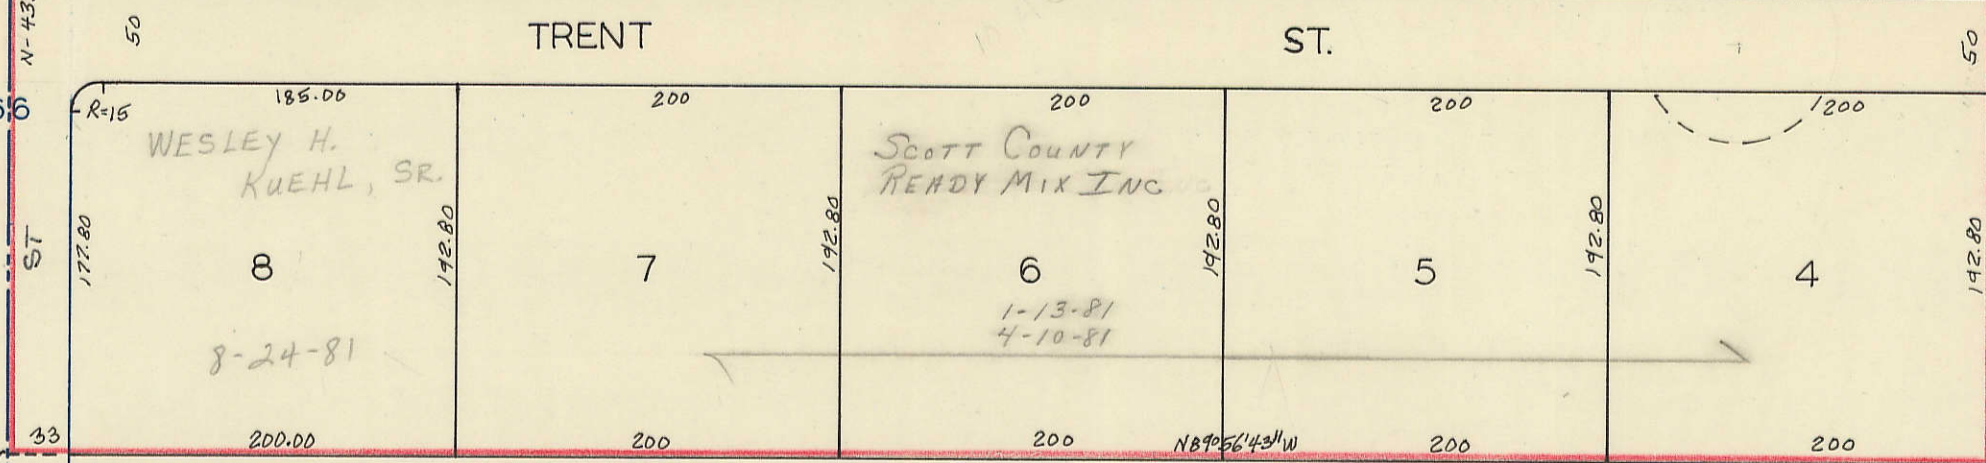 N-43
50
TRENT ST.
50
66
R=15
185.00
200
200
200
200
WESLEY H.
KUEHL, SR.
SCOTT COUNTY
READY MIX INC
ST
177.80
192.80
192.80
192.80
192.80
192.80
8
7
6
5
4
1-13-81
4-10-81
8-24-81
33
200.00
200
200
N89°56'43"W
200
200